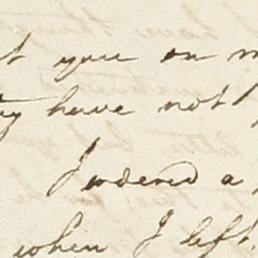 t you on m
ty have not
I ordered a
when I left